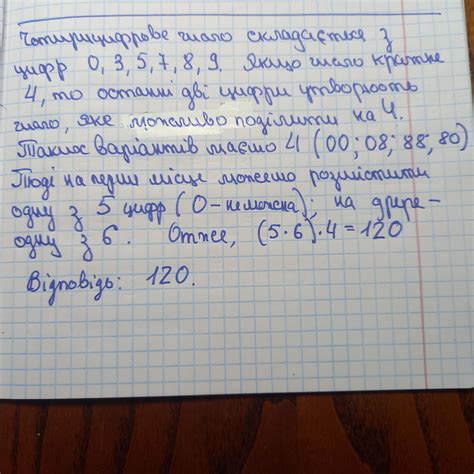 Чотирицифрове число складається з
цифр 0, 3, 5, 7, 8, 9. Якщо число кратне
4, то останні дві цифри утворюють
число, яке можливо поділити на 4.
Таких варіантів маємо 4 (00; 08; 88; 80)
Тоді на перше місце можемо розмістити
одну з 5 цифр (0-неможна); на друге-
одну з 6. Отже, (5·6)·4=120
Відповідь: 120.